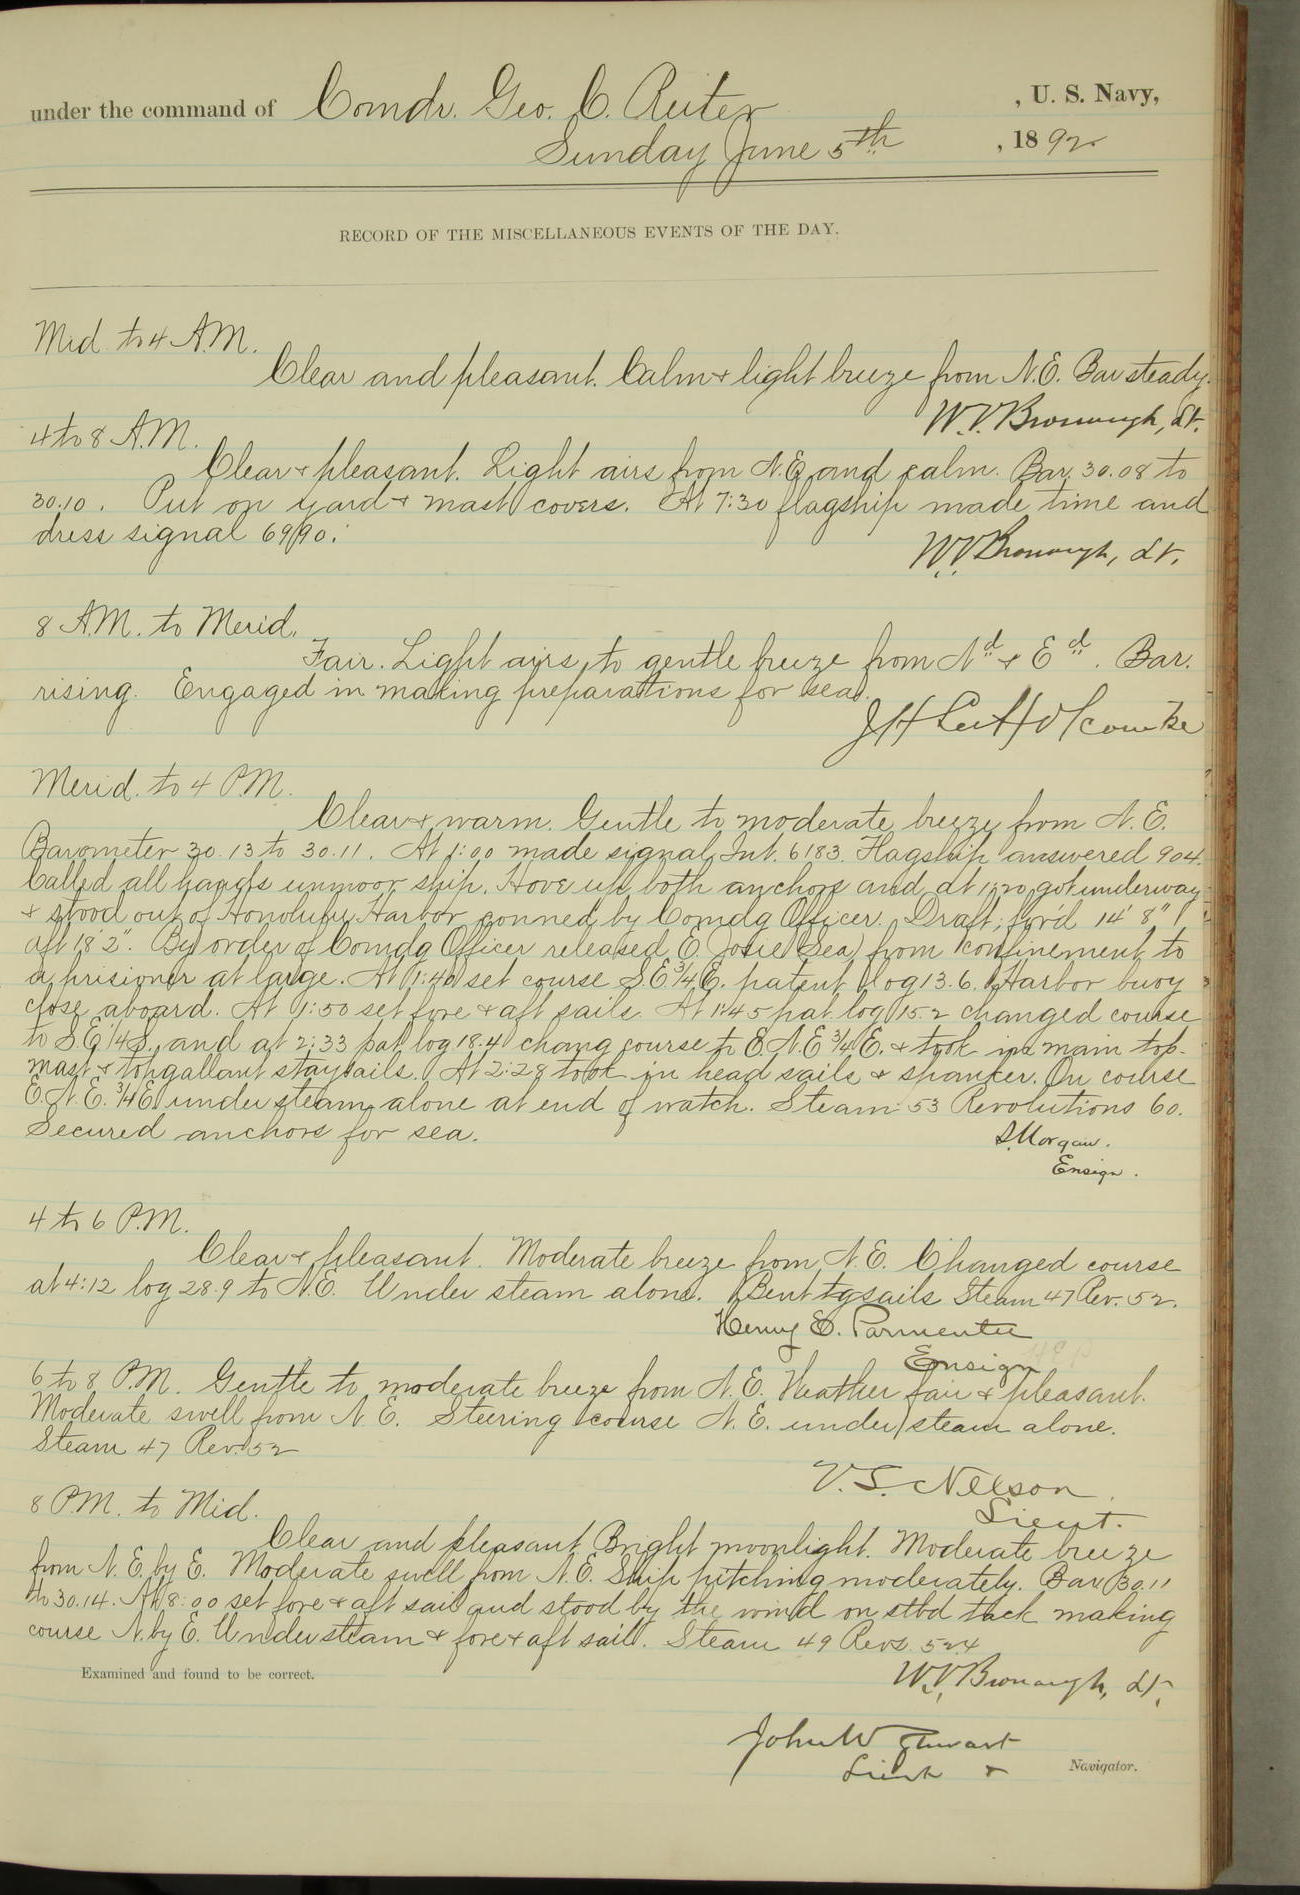 under the command of Comdr. Geo. C. Reiter , U. S. Navy,
Sunday June 5th , 1892
RECORD OF THE MISCELLANEOUS EVENTS OF THE DAY.
Mid to 4 A.M.
Clear and pleasant. Calm & light breeze from N.E. Bar steady.
W.V. Bronaugh, Lt.
4 to 8 A.M.
Clear & pleasant. Light airs from N.E. and calm. Bar. 30.08 to
30.10. Put on yard & mast covers. At 7:30 flagship made time and
dress signal 6990.
W.V. Bronaugh, Lt.
8 A.M. to Merid.
Fair. Light airs to gentle breeze from Nd & Ed. Bar.
rising. Engaged in making preparations for sea.
J H Lee Holcombe
Merid. to 4 P.M.
Clear & warm. Gentle to moderate breeze from N.E.
Barometer 30.13 to 30.11. At 1:00 made signal Int. 6183. Flagship answered 904.
Called all hands unmoor ship. Hove up both anchors and at 1:20 got underway
& stood out of Honolulu Harbor conned by Comdg Officer. Draft; for'd 14' 8"
aft 18' 2". By order of Comdg Officer released E. Josie (Sea) from confinement to
a prisioner at large. At 1:40 set course S.E.3/4E. patent log 13.6. Harbor buoy
close aboard. At 1:50 set fore & aft sails. At 1:45 pat. log 15.2 changed course
to S.E.1/4S. and at 2:33 pat log 18.4 chang course to E.N.E 3/4 E. & took in main top-
mast & topgallant staysails. At 2:28 took in head sails & spanker. On course
E.N.E. 3/4 E under steam alone at end of watch. Steam 53 Revolutions 60.
Secured anchors for sea.
S. Morgan.
Ensign.
4 to 6 P.M.
Clear & pleasant. Moderate breeze from N.E. Changed course
at 4:12 log 28.9 to N.E. Under steam alone. Bent tgsails Steam 47 Rev. 52.
Henry E. Parmenter
Ensign
6 to 8 P.M. Gentle to moderate breeze from N.E. Weather fair & pleasant.
Moderate swell from N.E. Steering course N.E. under steam alone.
Steam 47 Rev. 52
V. S. Nelson
Lieut.
8 P.M. to Mid.
Clear and pleasant Bright moonlight. Moderate breeze
from N.E. by E. Moderate swell from N.E. Ship pitching moderately. Bar 30.11
to 30.14. At 8:00 set fore & aft sail and stood by the wind on stbd tack making
course N. by E. Under steam & fore & aft sail. Steam 49 Revs 52.4
W.V. Bronaugh, Lt.
Examined and found to be correct.
John W Stewart
Lieut & Navigator.